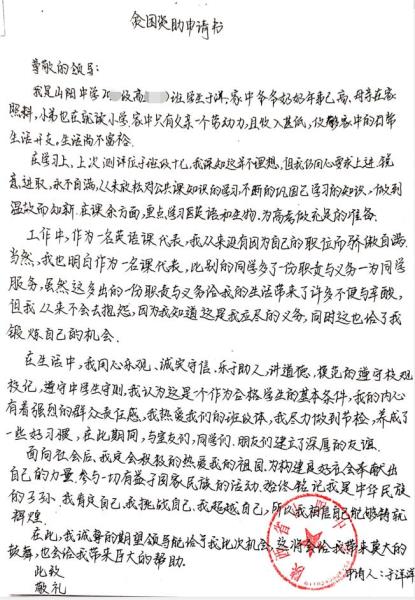 贫困资助申请书
尊敬的领导:
我是山阳中学20 级高 班学生于洋,家中爷爷奶奶年事已高、母亲在家
照料,小弟也在就读小学,家中只有父亲一个劳动力,且收入甚低,仅 家中的日常
生活开支,生活尚不富裕。
在学习上,上次测评位于班级十九,我深知这并不理想,但我仍用心要求上进、锐
意进取,永不自满,从未放松对公共课知识的学习,不断的巩固已学习的知识,做到
温故而知新。在课余方面,重点学习英语和生物,为高考做充足的准备。
工作中,作为一名英语课代表,我从来没有因为自己的职位而骄傲自满,
当然,我也明白作为一名课代表,比别的同学多了一份职责与义务—为同学
服务,虽然这多出的一份职责与义务给我的生活带来了许多不便与辛酸,
但我从来不会去抱怨,因为我知道这是我应尽的义务,同时这也给了我
锻炼自己的机会。
在生活中,我开心乐观、诚实守信、乐于助人,讲道德,模范的遵守校规
校纪,遵守中学生守则,我认为这是个作为合格学生的基本条件,我的内心
有着强烈的群众责任感,我热爱我们的班级体,我尽力做到节检,养成了
一些好习惯,在此期间,与室友们,同学们、朋友们建立了深厚的友谊。
面向社会后,我定会积极的热爱我的祖国,为构建良好社会奉献出
自己的力量,参与一切有益于国家民族的活动,始终铭记我是中华民族
的子孙,我肯定自己,我挑战自己,我超越自己,所以我相信自己能够铸就
辉煌。
在此,我诚尊的期望领导能给予我此次机会,这将会给我带来莫大的
鼓舞,也会给我带来巨大的帮助。
此致 申请人:于洋洋
敬礼